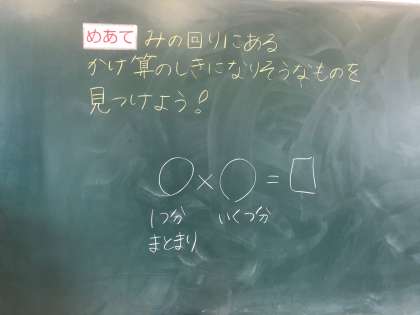 めあて みの回りにある
かけ算のしきになりそうなものを
見つけよう!
○×○=□
1つ分 いくつ分
まとまり